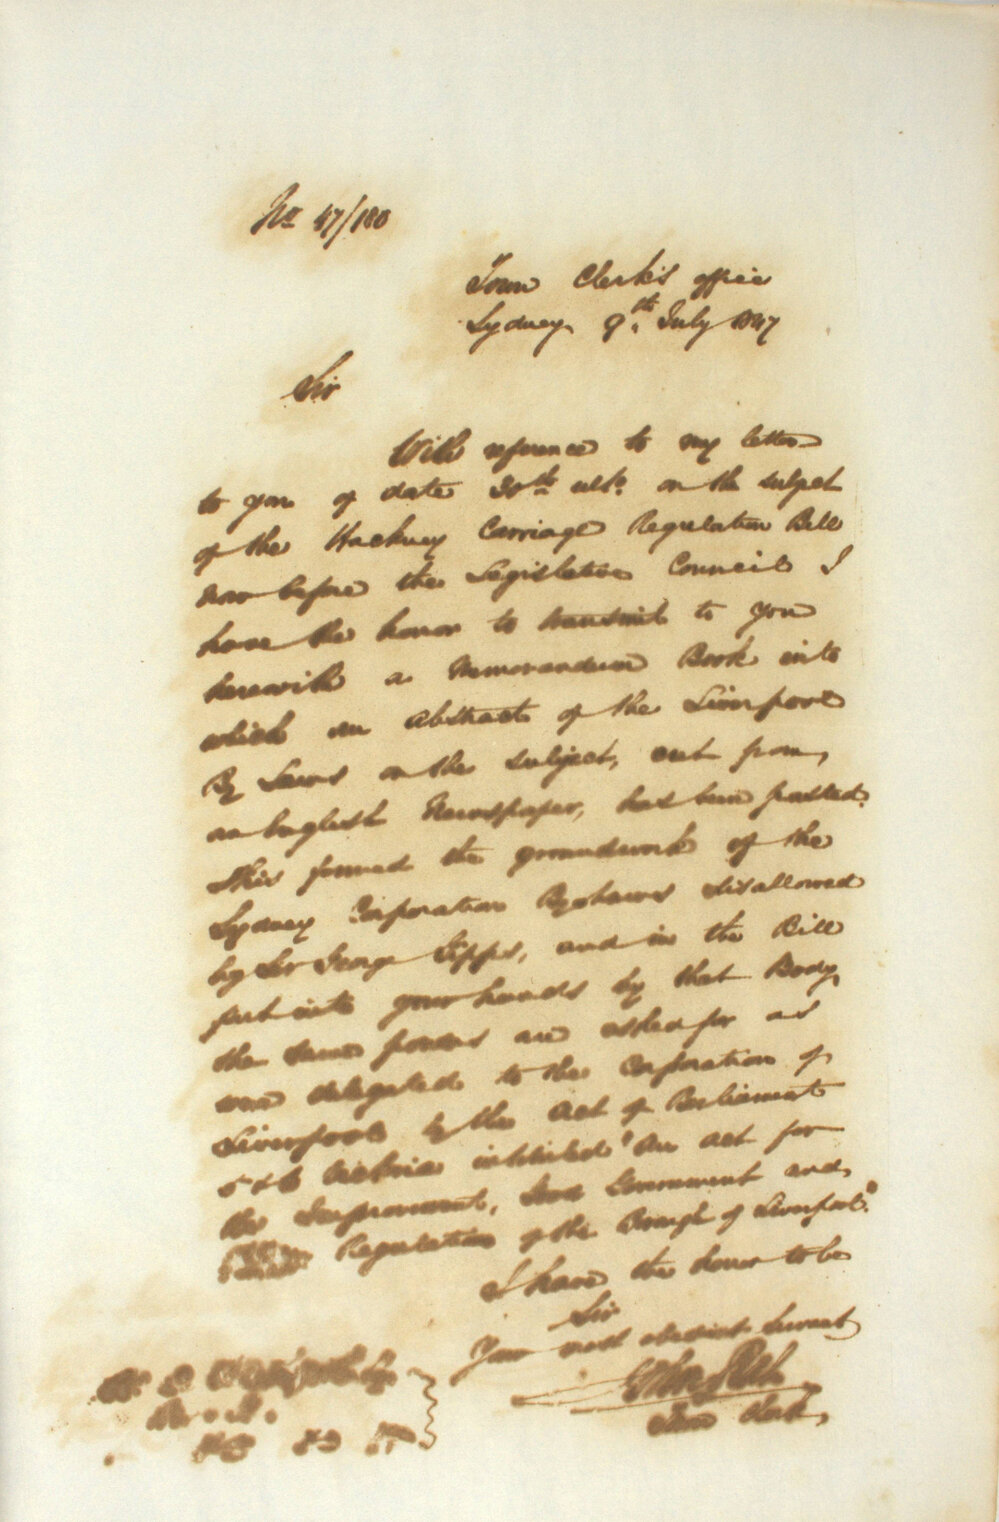 No 47/180
Town Clerk's Office
Sydney 9th July 1847
Sir
With reference to my letter
to you of date 30th ulto. on the subject
of the Hackney Carriage Regulation Bill
now before the Legislative Council I
have the honor to transmit to you
herewith a Memorandum Book into
which an Abstract of the Liverpool
By Laws on the subject, cut from
an English Newspaper, has been pasted.
This formed the groundwork of the
Sydney Corporation Byelaws disallowed
by Sir George Gipps, and in the Bill
put into your hands by that Body
the same powers are asked for as
were delegated to the Corporation of
Liverpool by the Act of Parliament
5 & 6 Victoria intituled "An act for
the Improvement, Good Government and
Regulation of the Borough of Liverpool."
I have the honor to be
Sir
Your most obedient Servant
Town Clerk